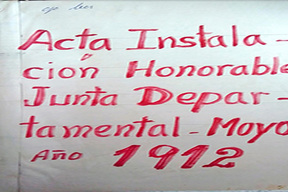 Acta Instala-
ción Honorable
Junta Depar-
tamental-Moyo
Año 1912